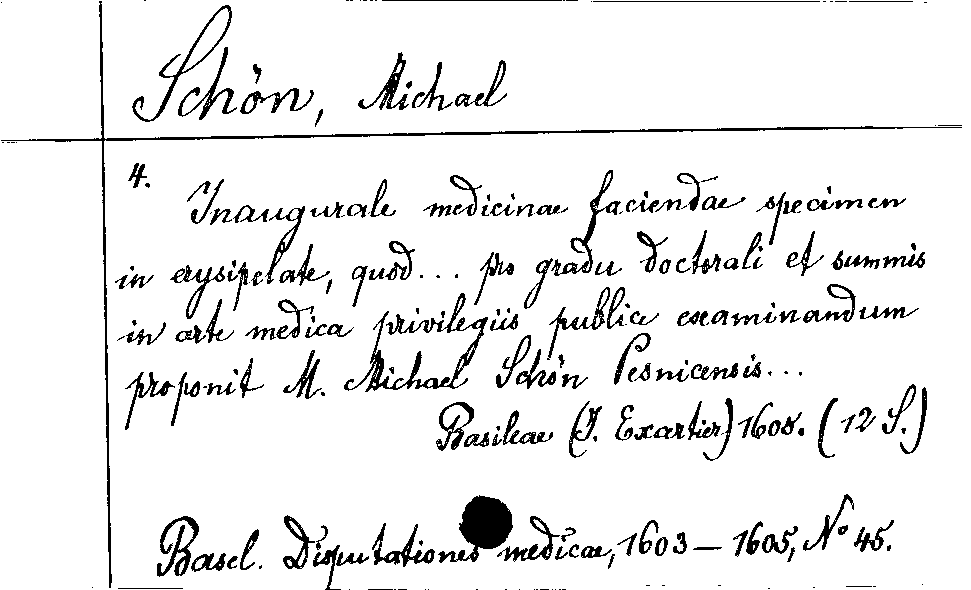 Schön, Michael
4.
Inaugurale medicinae faciendae specimen
in erysipelate, quod... pro gradu doctorali et summis
in arte medica privilegiis publice examinandum
proponit M. Michael Schön Pesnicensis...
Basileae (J. Exartier) 1605. (12 S.)
Basel. Disputationes medicae, 1603 — 1605, No 45.